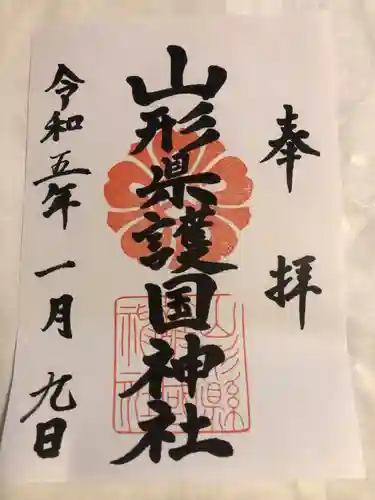 奉拝
山形県護国神社
令和五年一月九日